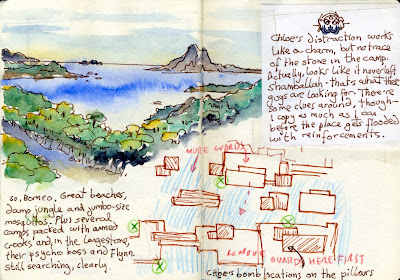 Chloe's distraction works
like a charm, but no trace
of the stone in the camp.
Actually, looks like it never left
Shamballah - that's what these
guys are looking for. There're
some clues around, though -
I copy as much as I can
before the place gets flooded
with reinforcements.
MORE GUARDS
So, Borneo. Great beaches,
damp jungle and jumbo-size
mosquitos. Plus several
camps packed with armed
crooks and, in the largest one,
their psycho boss and Flynn.
Still searching, clearly.
REMOVE GUARDS HERE FIRST
Chloe's bomb locations on the pillars